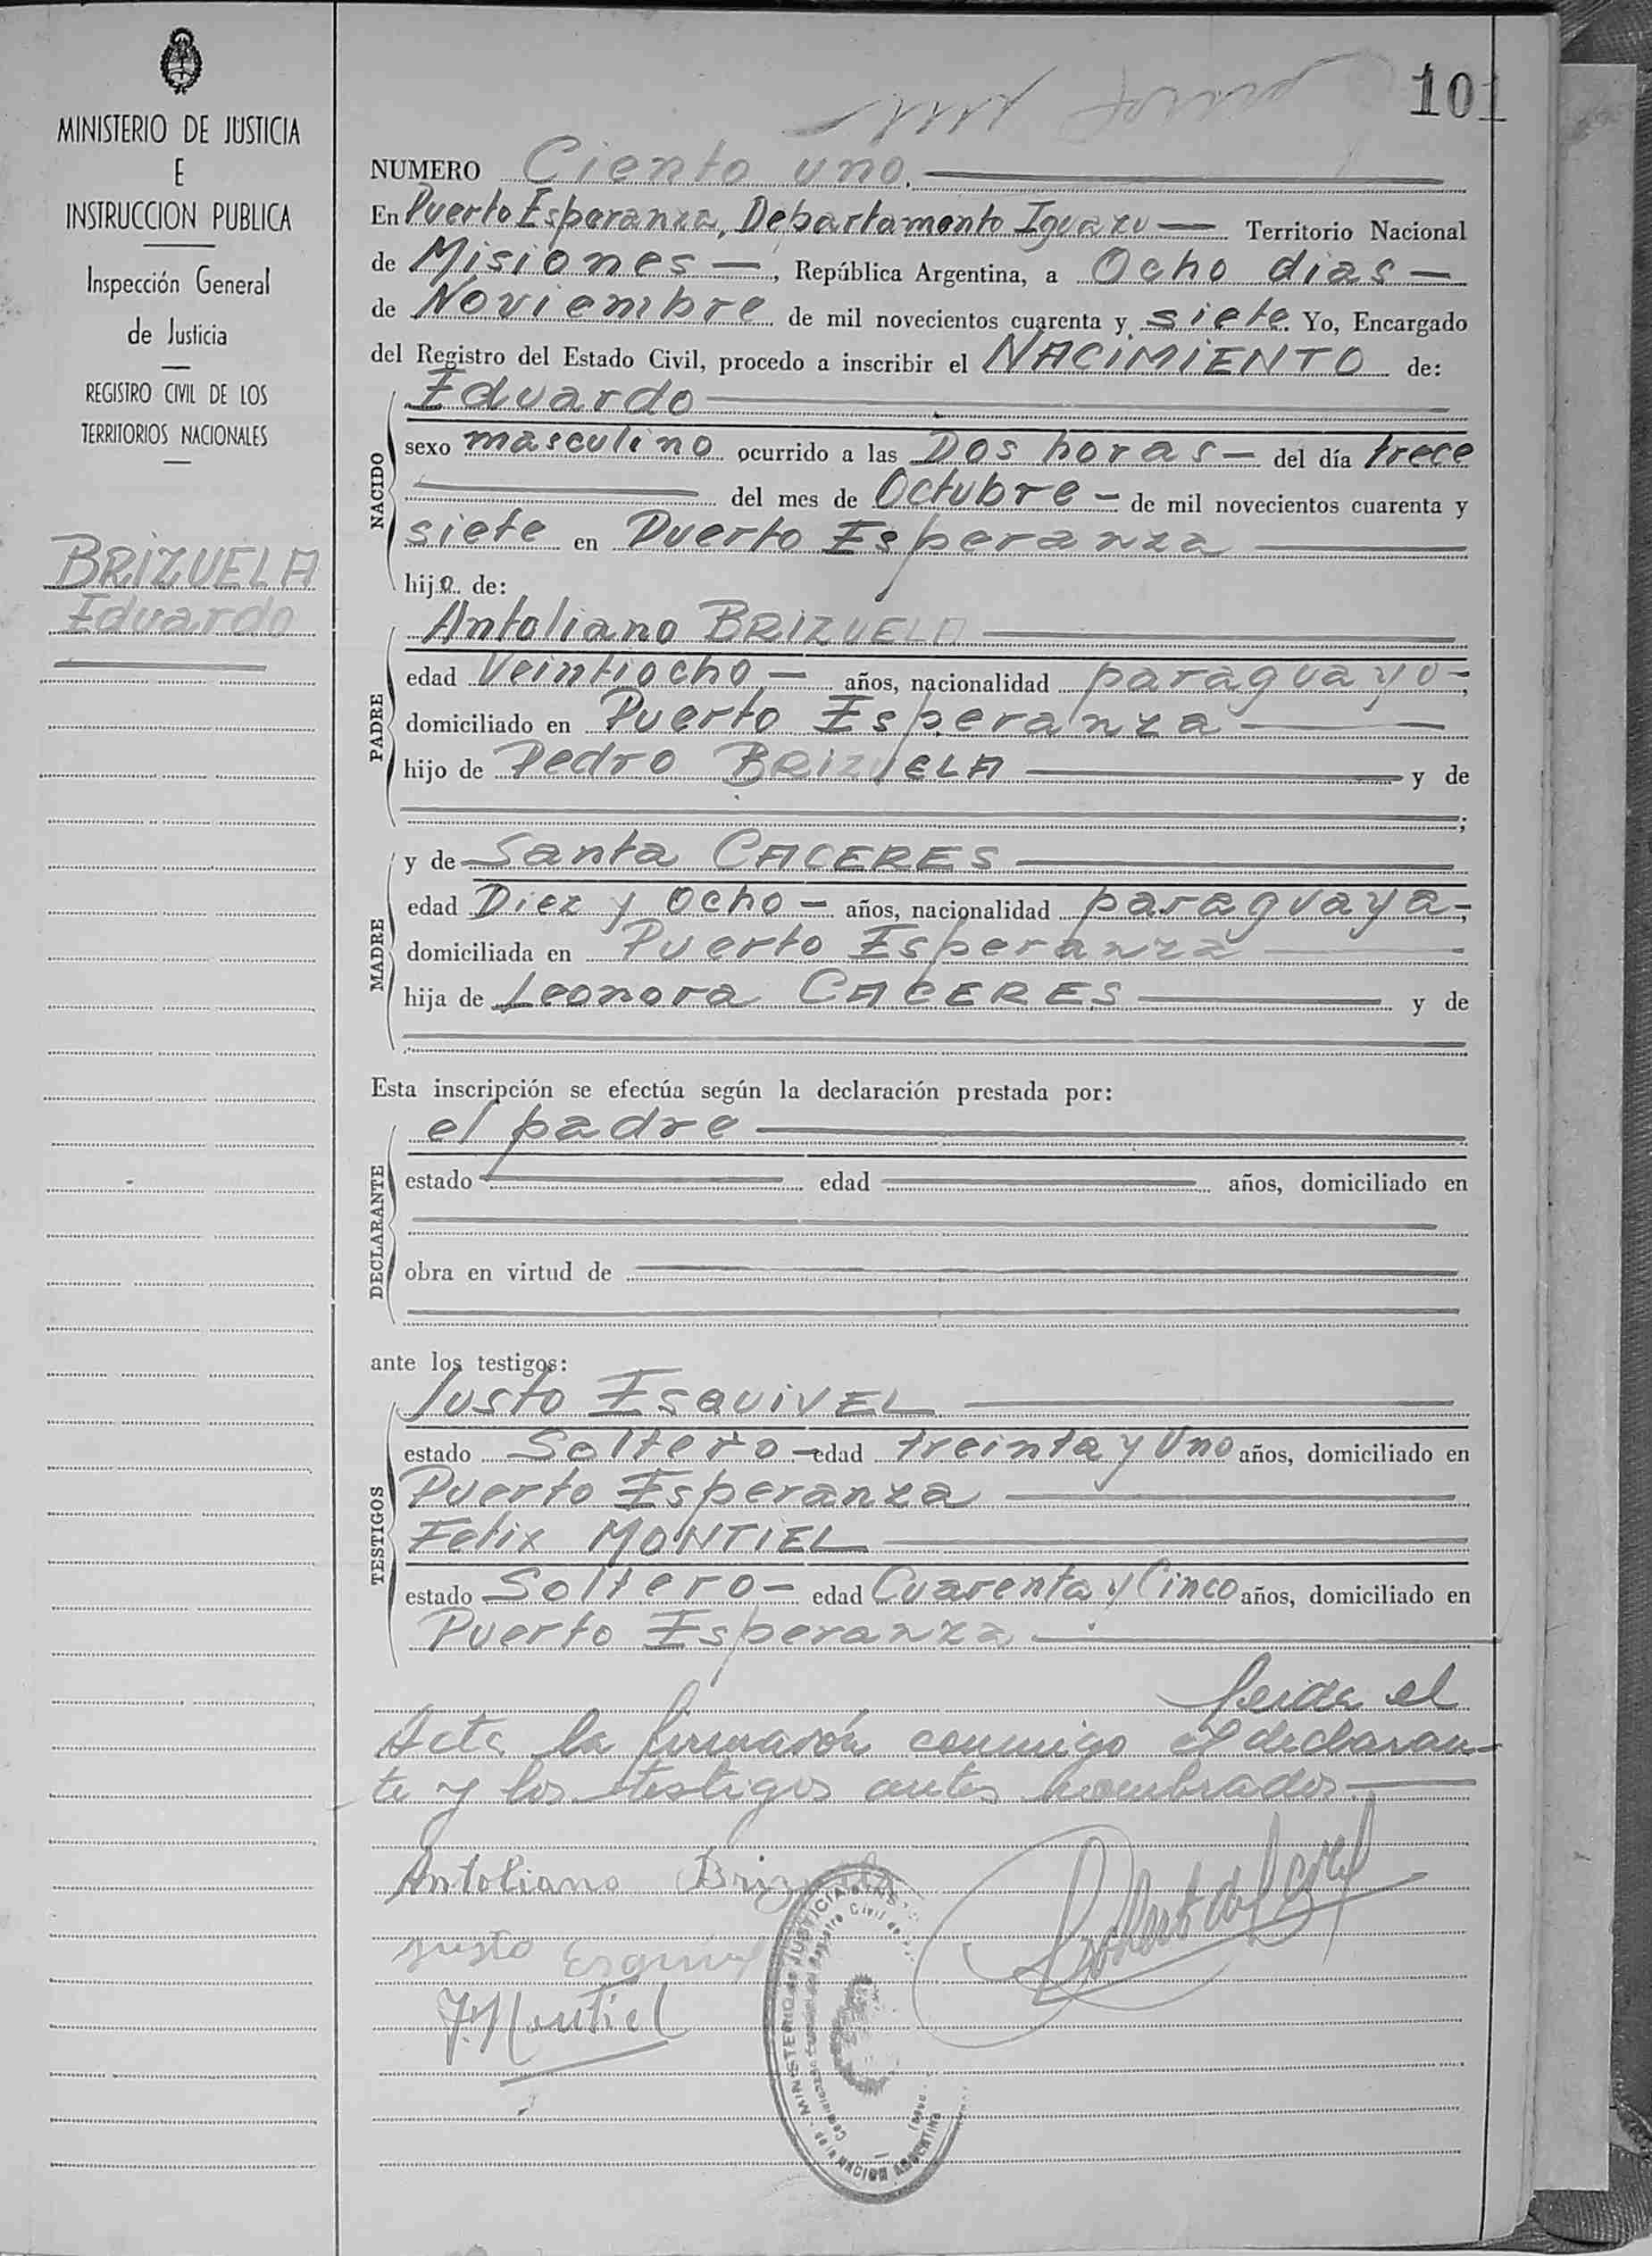 MINISTERIO DE JUSTICIA
E
INSTRUCCION PUBLICA
Inspección General
de Justicia
REGISTRO CIVIL DE LOS
TERRITORIOS NACIONALES
BRIZUELA
Eduardo
101
NUMERO Ciento uno.
En Puerto Esperanza, Departamento Iguazu — Territorio Nacional
de Misiones —, República Argentina, a Ocho dias —
de Noviembre de mil novecientos cuarenta y siete. Yo, Encargado
del Registro del Estado Civil, procedo a inscribir el NACIMIENTO de:
NACIDO
Eduardo
sexo masculino ocurrido a las Dos horas — del día trece
del mes de Octubre — de mil novecientos cuarenta y
siete en Puerto Esperanza
hijo de:
PADRE
Antoliano BRIZUELA
edad Veintiocho — años, nacionalidad paraguayo -,
domiciliado en Puerto Esperanza
hijo de Pedro BRIZUELA y de
;
MADRE
y de Santa CACERES
edad Diez y Ocho — años, nacionalidad paraguaya -,
domiciliada en Puerto Esperanza
hija de Leonora CACERES y de
Esta inscripción se efectúa según la declaración prestada por:
DECLARANTE
el padre
estado edad años, domiciliado en
obra en virtud de
ante los testigos:
TESTIGOS
Justo ESQUIVEL
estado Soltero — edad treinta y Uno años, domiciliado en
Puerto Esperanza
Felix MONTIEL
estado Soltero — edad Cuarenta y Cinco años, domiciliado en
Puerto Esperanza
leida el
Acta la firmarón conmigo el declaran-
te y los testigos antes nombrados.
Antoliano Brizuela
justo Esquivel
F. Montiel
MINISTERIO de JUSTICIA e INS
Registro Civil de
NACION ARGENTINA